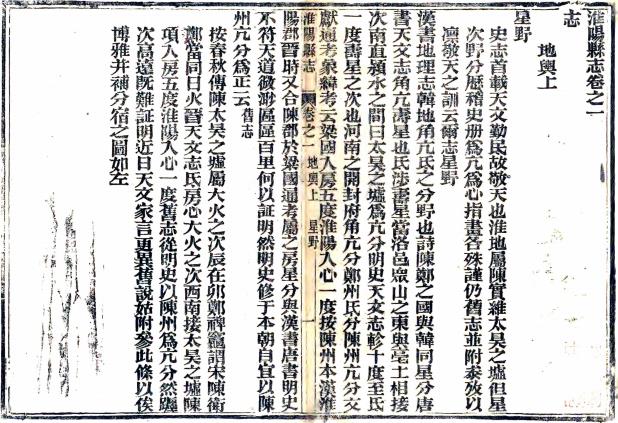 淮陽縣志卷之一
地輿上
志
史志首載天文勤民故敬天也淮地屬陳實維太昊之墟但星
次野分歷稽史册爲亢爲心指畫各殊謹仍舊志並附叅攷以
凜敬天之訓云爾志星野
星野
漢書地理志韓地角亢氐之分野也詩陳鄭之國與韓同星分唐
書天文志角亢壽星也氐涉壽星當洛邑眾山之東與亳土相接
次南直潁水之間曰太昊之墟爲亢分明史天文志軫十度至氐
一度壽星之次也河南之開封府角亢分鄭州氐分陳州亢分文
獻通考象緯考云梁國入房五度淮陽入心一度按陳州本漢淮
淮陽縣志 卷之一 地輿上 星野 一
陽郡晋時又合陳郡於梁國通考屬之房星分與漢書唐書明史
不符天道微渺區區百里何以証明然明史修于本朝自宜以陳
州亢分爲正云舊志
按春秋傳陳太昊之墟屬大火之次辰在卯鄭裨竈謂宋陳衛
鄭當同日火晉天文志氐房心大火之次西南接太昊之墟陳
項入房五度淮陽入心一度舊志從明史以陳州爲亢分然躔
次高遠既難証明近日天文家言更異舊說姑附參此條以俟
博雅并補分宿之圖如左